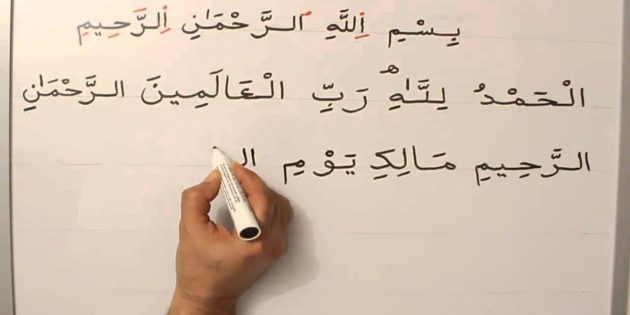 بِسْمِ اللَّهِ الرَّحْمَٰنِ الرَّحِيمِ
الْحَمْدُ لِلَّٰهِ رَبِّ الْعَالَمِينَ الرَّحْمَٰنِ
الرَّحِيمِ مَالِكِ يَوْمِ الـ